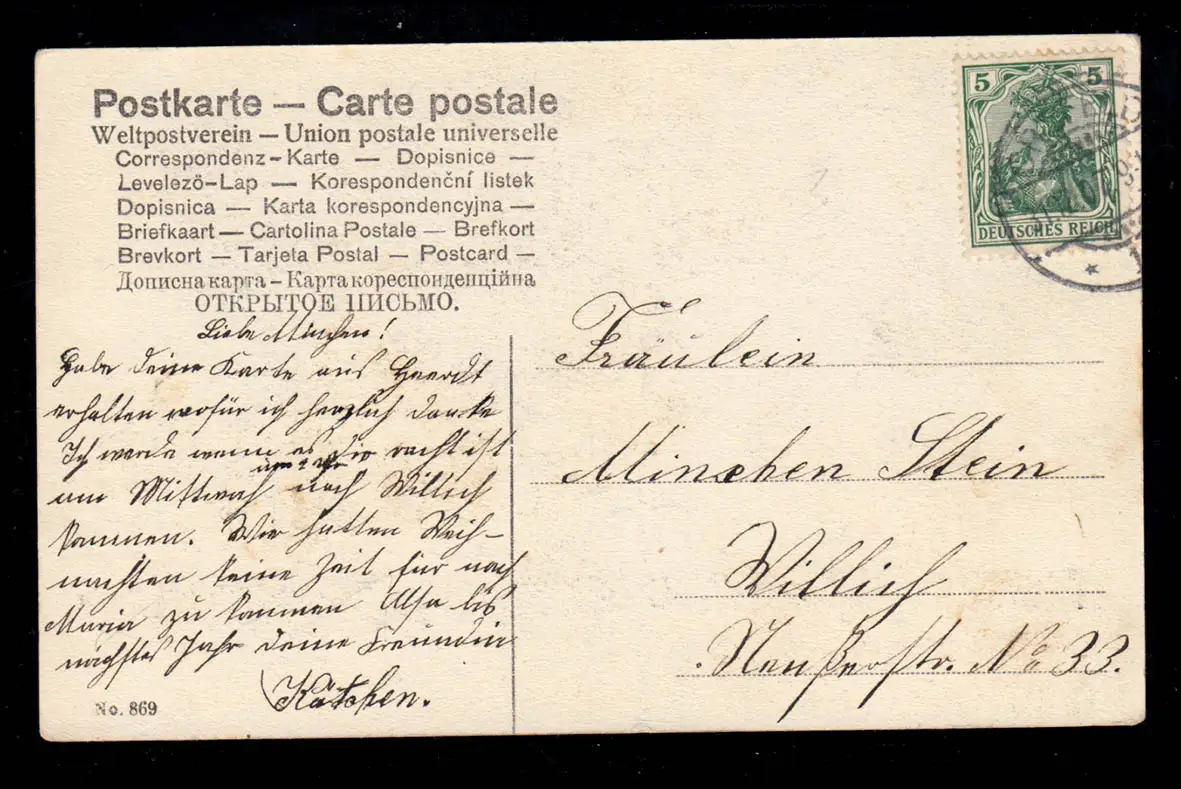 Postkarte — Carte postale
Weltpostverein — Union postale universelle
Correspondenz-Karte — Dopisnice —
Levelezö-Lap — Korespondenční listek
Dopisnica — Karta korespondencyjna —
Briefkaart — Cartolina Postale — Brefkort
Brevkort — Tarjeta Postal — Postcard —
Дописна карта — Карта кореспонденцiйна
ОТКРЫТОЕ ПИСЬМО.
Liebe Minchen!
Habe deine Karte aus Heerdt
erhalten wofür ich herzlich danke
Ich werde wenn es dir recht ist
um 2 Uhr
am Mittwoch nach Willich
kommen. Wir hatten Weih-
nachten keine Zeit für nach
Maria zu kommen Also bis
nächstes Jahr deine Freundin
Kätchen.
No. 869
5 5
DEUTSCHES REICH
Fräulein
Minchen Stein
Willich
Neußerstr. No 33.